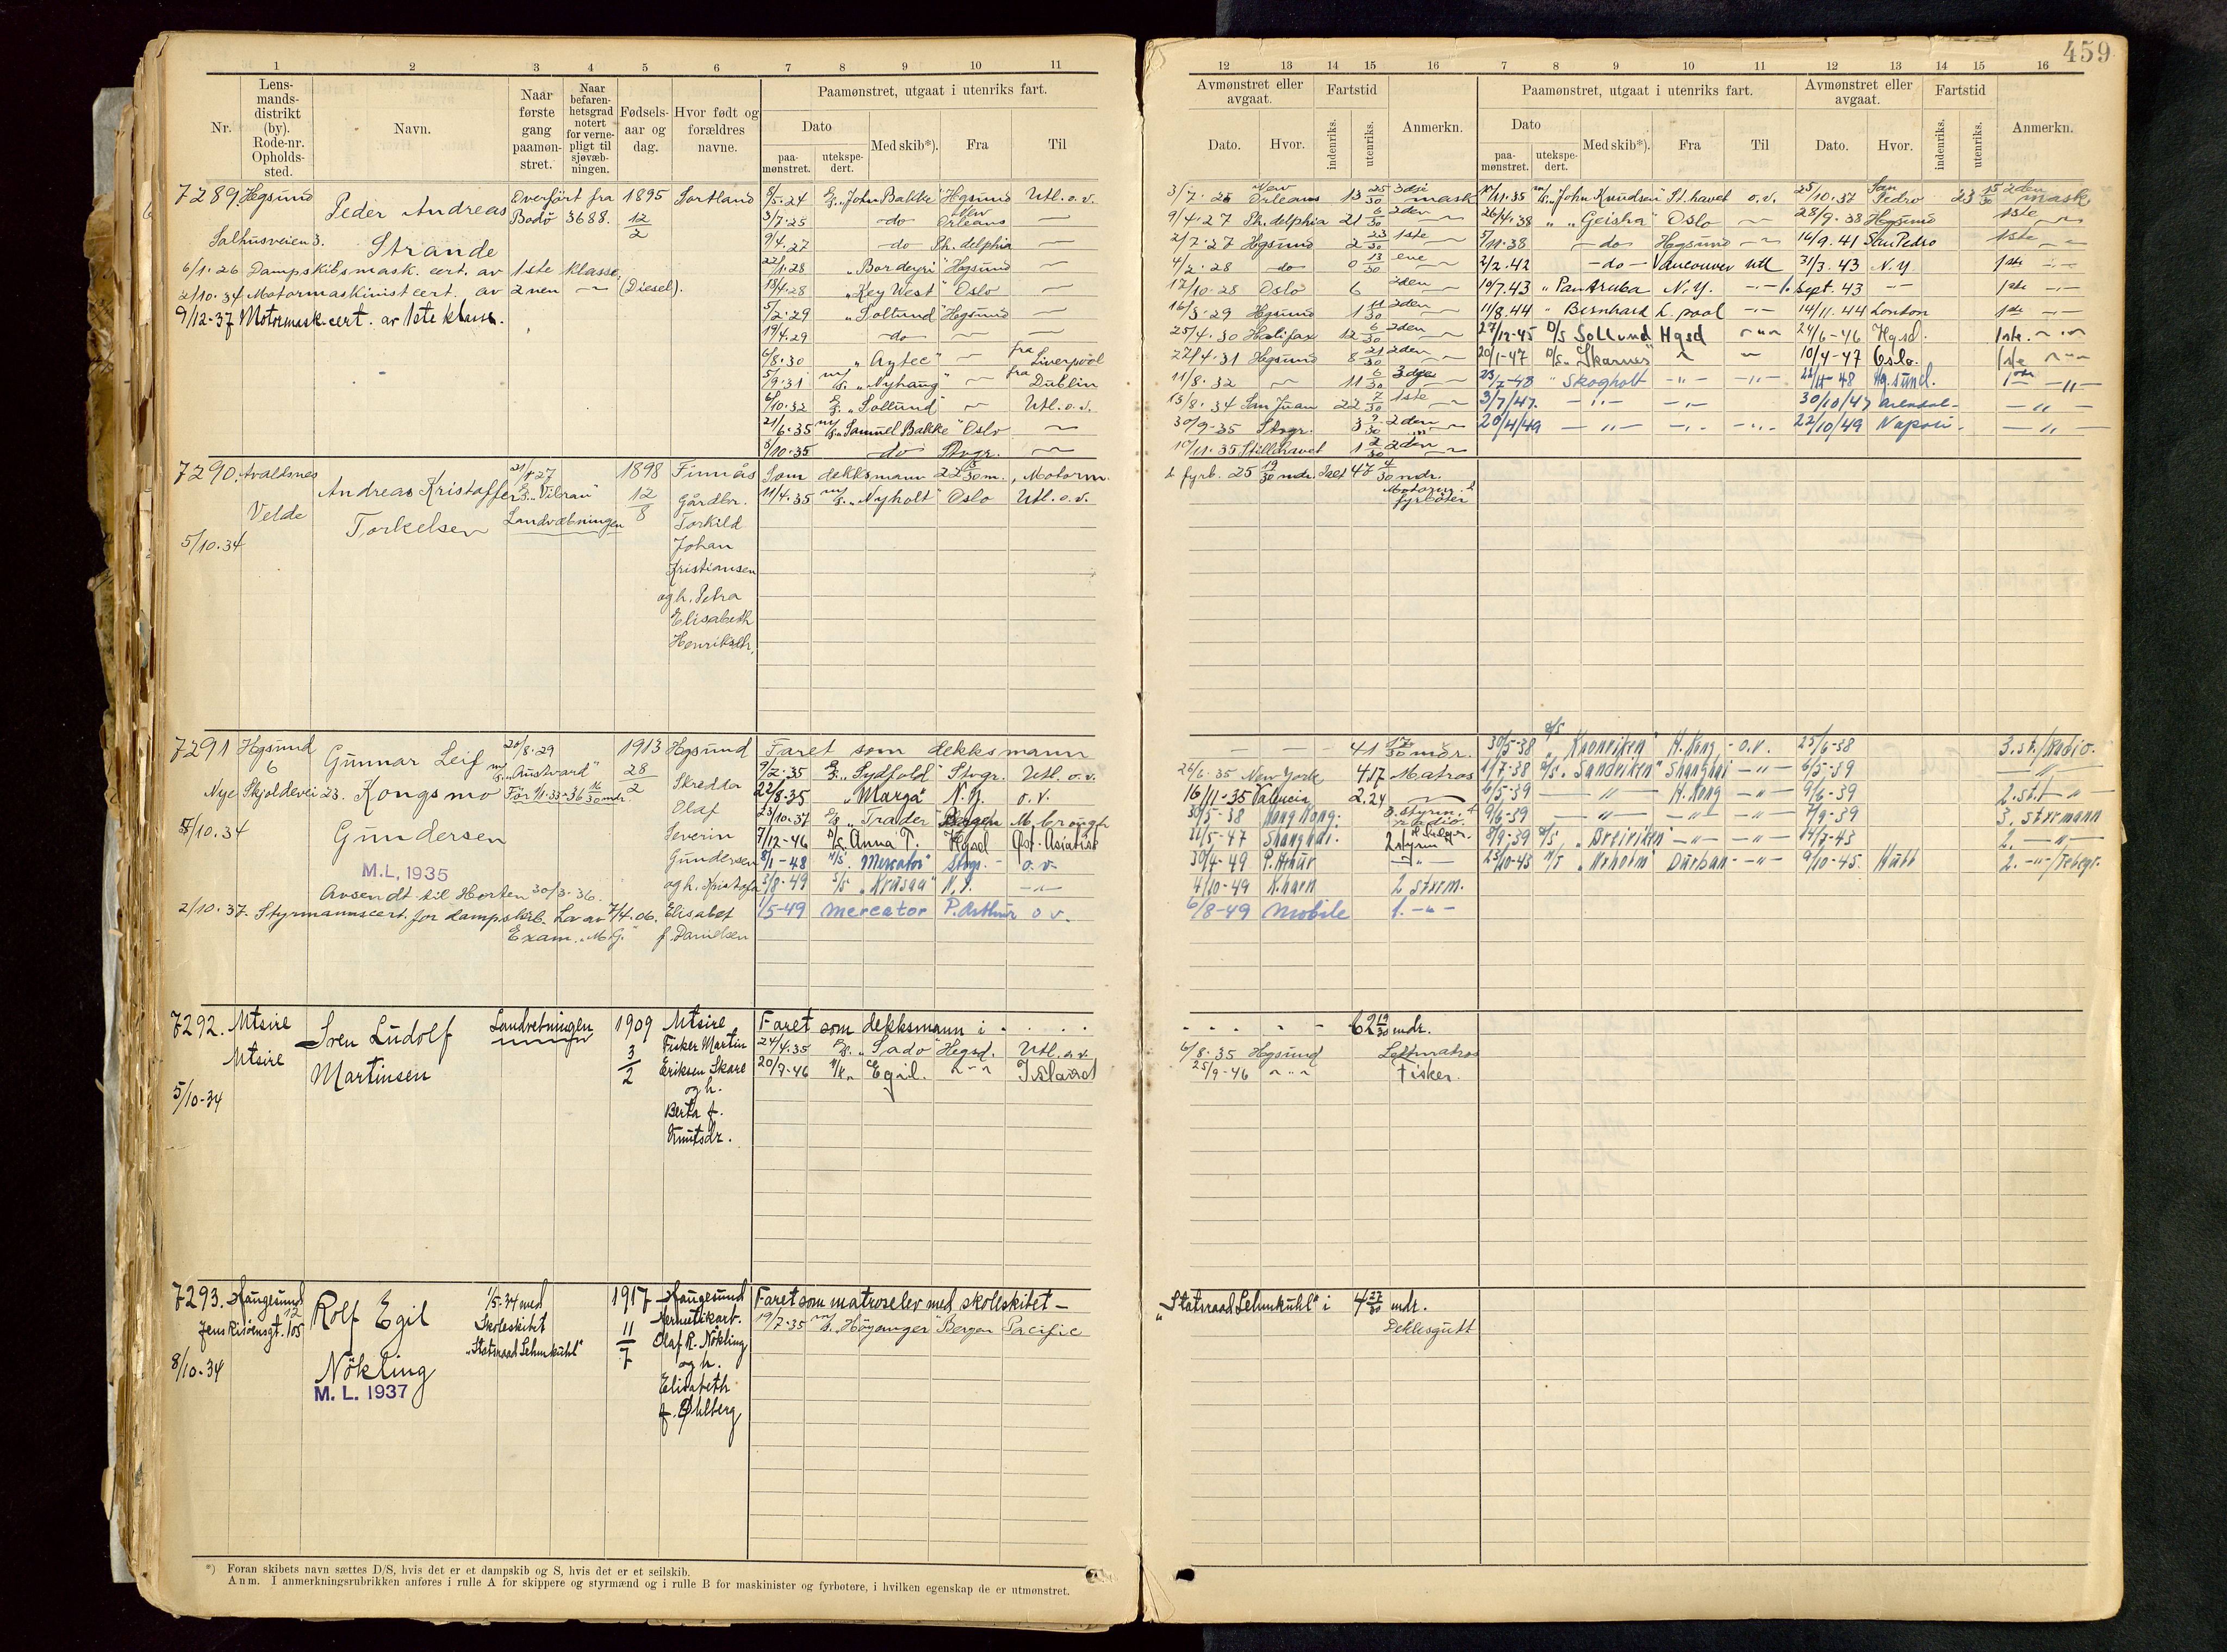 459
1 2 3 4 5 6 7 8 9 10 11
Nr.
Lens-
mands-
distrikt
(by).
Rode-nr.
Opholds-
sted.
Navn.
Naar
første
gang
paamøn-
stret.
Naar
befaren-
hetsgrad
notert
for verne-
pligt til
sjøvæb-
ningen.
Fødsels-
aar og
dag.
Hvor født og
forældres
navne.
Paamønstret, utgaat i utenriks fart.
Dato
paa-
mønstret.
utekspe-
dert.
Med skib*).
Fra
Til
12 13 14 15 16 7 8 9 10 11 12 13 14 15 16
Avmønstret eller
avgaat.
Dato. Hvor.
Fartstid
indenriks. utenriks.
Anmerkn.
Paamønstret, utgaat i utenriks fart.
Dato
paa-
mønstret.
utekspe-
dert.
Med skib*).
Fra
Til
Avmønstret eller
avgaat.
Dato. Hvor.
Fartstid
indenriks. utenriks.
Anmerkn.
7289. Hgsund
Peder Andreas
Strande
Salhusveien 3.
Overført fra
Bodø 3688.
1895
12
2
Sortland
6/1.26 Dampskibsmask. cert. av 1ste klasse,
2/10.34 Motormaskinistcert. av 2nen — (Diesel).
9/12-37 Motormask.cert. av 1ste klasse.
8/5.24 "John Bakke" Hgsund Utl. o. v.
3/7.25 —do— New Orleans —
9/4.27 —do— Ph. delphia —
22/1.28 "Bordeyri" Hgsund —
18/4.28 "Key West" Oslo —
5/2.29 "Sollund" Hgsund —
19/4.29 —do— —
6/8.30 "Aztec" — fra Liverpool
5/9.31 "Nyhaug" — fra Dublin
6/10.32 "Sollund" — Utl. o. v.
21/6.35 "Samuel Bakke" Oslo —
8/10.35 do Stvgr. —
3/7.25 New Orleans 13 25/30 3dje mask
9/4.27 Ph. delphia 21 6/30 2den —
2/7.27 Hgsund 2 23/30 1ste —
4/2.28 —do— 0 13/30 ene —
17/10-28 Oslo 6 2den —
16/3.29 Hgsund 1 11/30 2den —
25/4.30 Halifax 12 6/30 2den —
27/4.31 Hgsund 8 21/30 2den —
11/8.32 — 11 6/30 3dje —
13/8.34 San Juan 22 7/30 1ste —
30/9-35 Stvgr. 3 2den —
10/11.35 Stillehavet 1 2/30 2den —
10/11.35 "John Knudsen" St.havet o.v. 25/10.37 San Pedro 23 15/30 2den mask
26/4.38 " "Geisha" Oslo — 28/9.38 Hgsund 1ste —
5/11.38 —do— Hgsund — 16/9.41 San Pedro 1ste —
2/2.42 —do— Vancouver utl 31/3.43 N.Y. 1ste —
10/7.43 "Pan Aruba N.Y. — 1. sept. 43 — 1ste —
11/8.44 " Bernhard L.pool — 14/11.44 London 1ste —
27/12-45 D/S Sollund Hgsd — 24/6-46 Hgsd. 1ste. —
20/1-47 D/S. "Skarnes" — — 10/4-47 Oslo. 1ste —
23/7-48 " Skogholt —"— —"— 22/11-48 Hg.sund. 1ste —"—
3/7/47. —"— —"— 30/10/47 Arendal- —"—
20/4/49 —"— —"— —"— 22/10/49 Napoli- —"—
7290. Avaldsnes
Velde
5/10.34
Andreas Kristoffer
Torkelsen
21/1.27
"Vilran"
Landvæbningen
1898
12
8
Finnås
Gårdbr.
Torkild
Johan
Kristiansen
og h. Petra
Elisabeth
Henriksdtr.
Som dekksmann 22 15/30 m., Motorm.
11/4.35 "Nyholt" Oslo Utl. o. v.
& fyrb. 25 19/30 mdr. Ialt 48 4/30 mdr.
Motorm. &
fyrbøter
7291 Hgsund
6
Nye Skjoldevei 23.
5/10.34
Gunnar Leif
Kongsmo
Gundersen
M.L. 1935
Avsendt til Horten 30/3-36.
2/10.37. Styrmannscert. for dampskib. Lov av 7/4.06.
Exam. "M.G."
20/8.29
"Austvard"
Før 1/1.33-36 16/30 mdr.
1913
28
2
Hgsund
Skredder
Olaf
Severin
Gundersen
og h. Kristofa
Elisabet
f. Danielsen
Faret som dekksmann
9/2.35 "Sydfold" Stvgr. Utl. o. v.
22/8-35 "Marga" N.Y. o. v.
23/10.37 "Trader" Bergen M. brough
7/12-46 D/S Anna T. Hgsd Øst. Asiatisk
8/1-48 M/S. Mercator Stvgr. - o. v.
3/8-49 S/S "Krusaa" N.Y. —
1/5-49 Mercator P. Arthur o v.
— — — 41 17/30 mdr.
26/6.35 New York 4.17 Matros
16/11-35 Valencia 2.24 —
30/5-38 Hong Kong. 3. styrm. & radio.
21/5-47 Shanghai. 2 styrm & telegr.
30/4-49 P. Arthur —"—
4/10-49 K.havn 2 styrm.
6/8-49 Mobile 1. —"—
30/5-38 "Kronviken" H. Kong - o.v. 25/6-38 3. st./Radio.
1/7-38 "Sandviken" Shanghai —"— 6/5-39 —"—
6/5-39 —"— H. Kong —"— 9/6-39 2. st.f —"—
9/6-39 —"— —"— —"— 7/9-39 3. styrmann
8/9.39 "Breiviken" —"— —"— 14/7-43 2. —"—
25/10-43 M/S "Norholm" Durban —"— 9/10-45. Hull 2. —"—/Telegr.
7292. Utsire
Utsire
5/10-34
Sven Ludolf
Martinsen
Landvebningen
1909
3
2
Utsire
Fisker Martin
Eriksen Skare
og h.
Berta f.
Knutsdr.
Faret som dekksmann i - . . .
24/4.35 "Sado" Hegsd. Utl. o. v.
20/7-46 M/k. Egil. —"— Island
- - - - - 62 19/30 mdr.
6/8.35 Hgsund Lettmatros
25/9-46 —"— Fisker.
7293. Haugesund
Jens Risøensgt. 105 12
8/10.34
Rolf Egil
Nökling
M. L. 1937
1/5-34 med
Skoleskibet
"Statsraad Lehmkuhl"
1917
11
7
Haugesund
Hermetikarb.
Olaf R. Nökling
og h.
Elisabeth
f. Øhlberg
Faret som matroselev med skoleskibet —
19/7.35 "Höyanger" Bergen Pacific
"Statsraad Lehmkuhl" i 4 27/30 mdr.
Dekksgutt
*) Foran skibets navn sættes D/S, hvis det er et dampskib og S, hvis det er et seilskib.
Anm. I anmerkningsrubrikken anføres i rulle A for skippere og styrmænd og i rulle B for maskinister og fyrbøtere, i hvilken egenskap de er utmønstret.